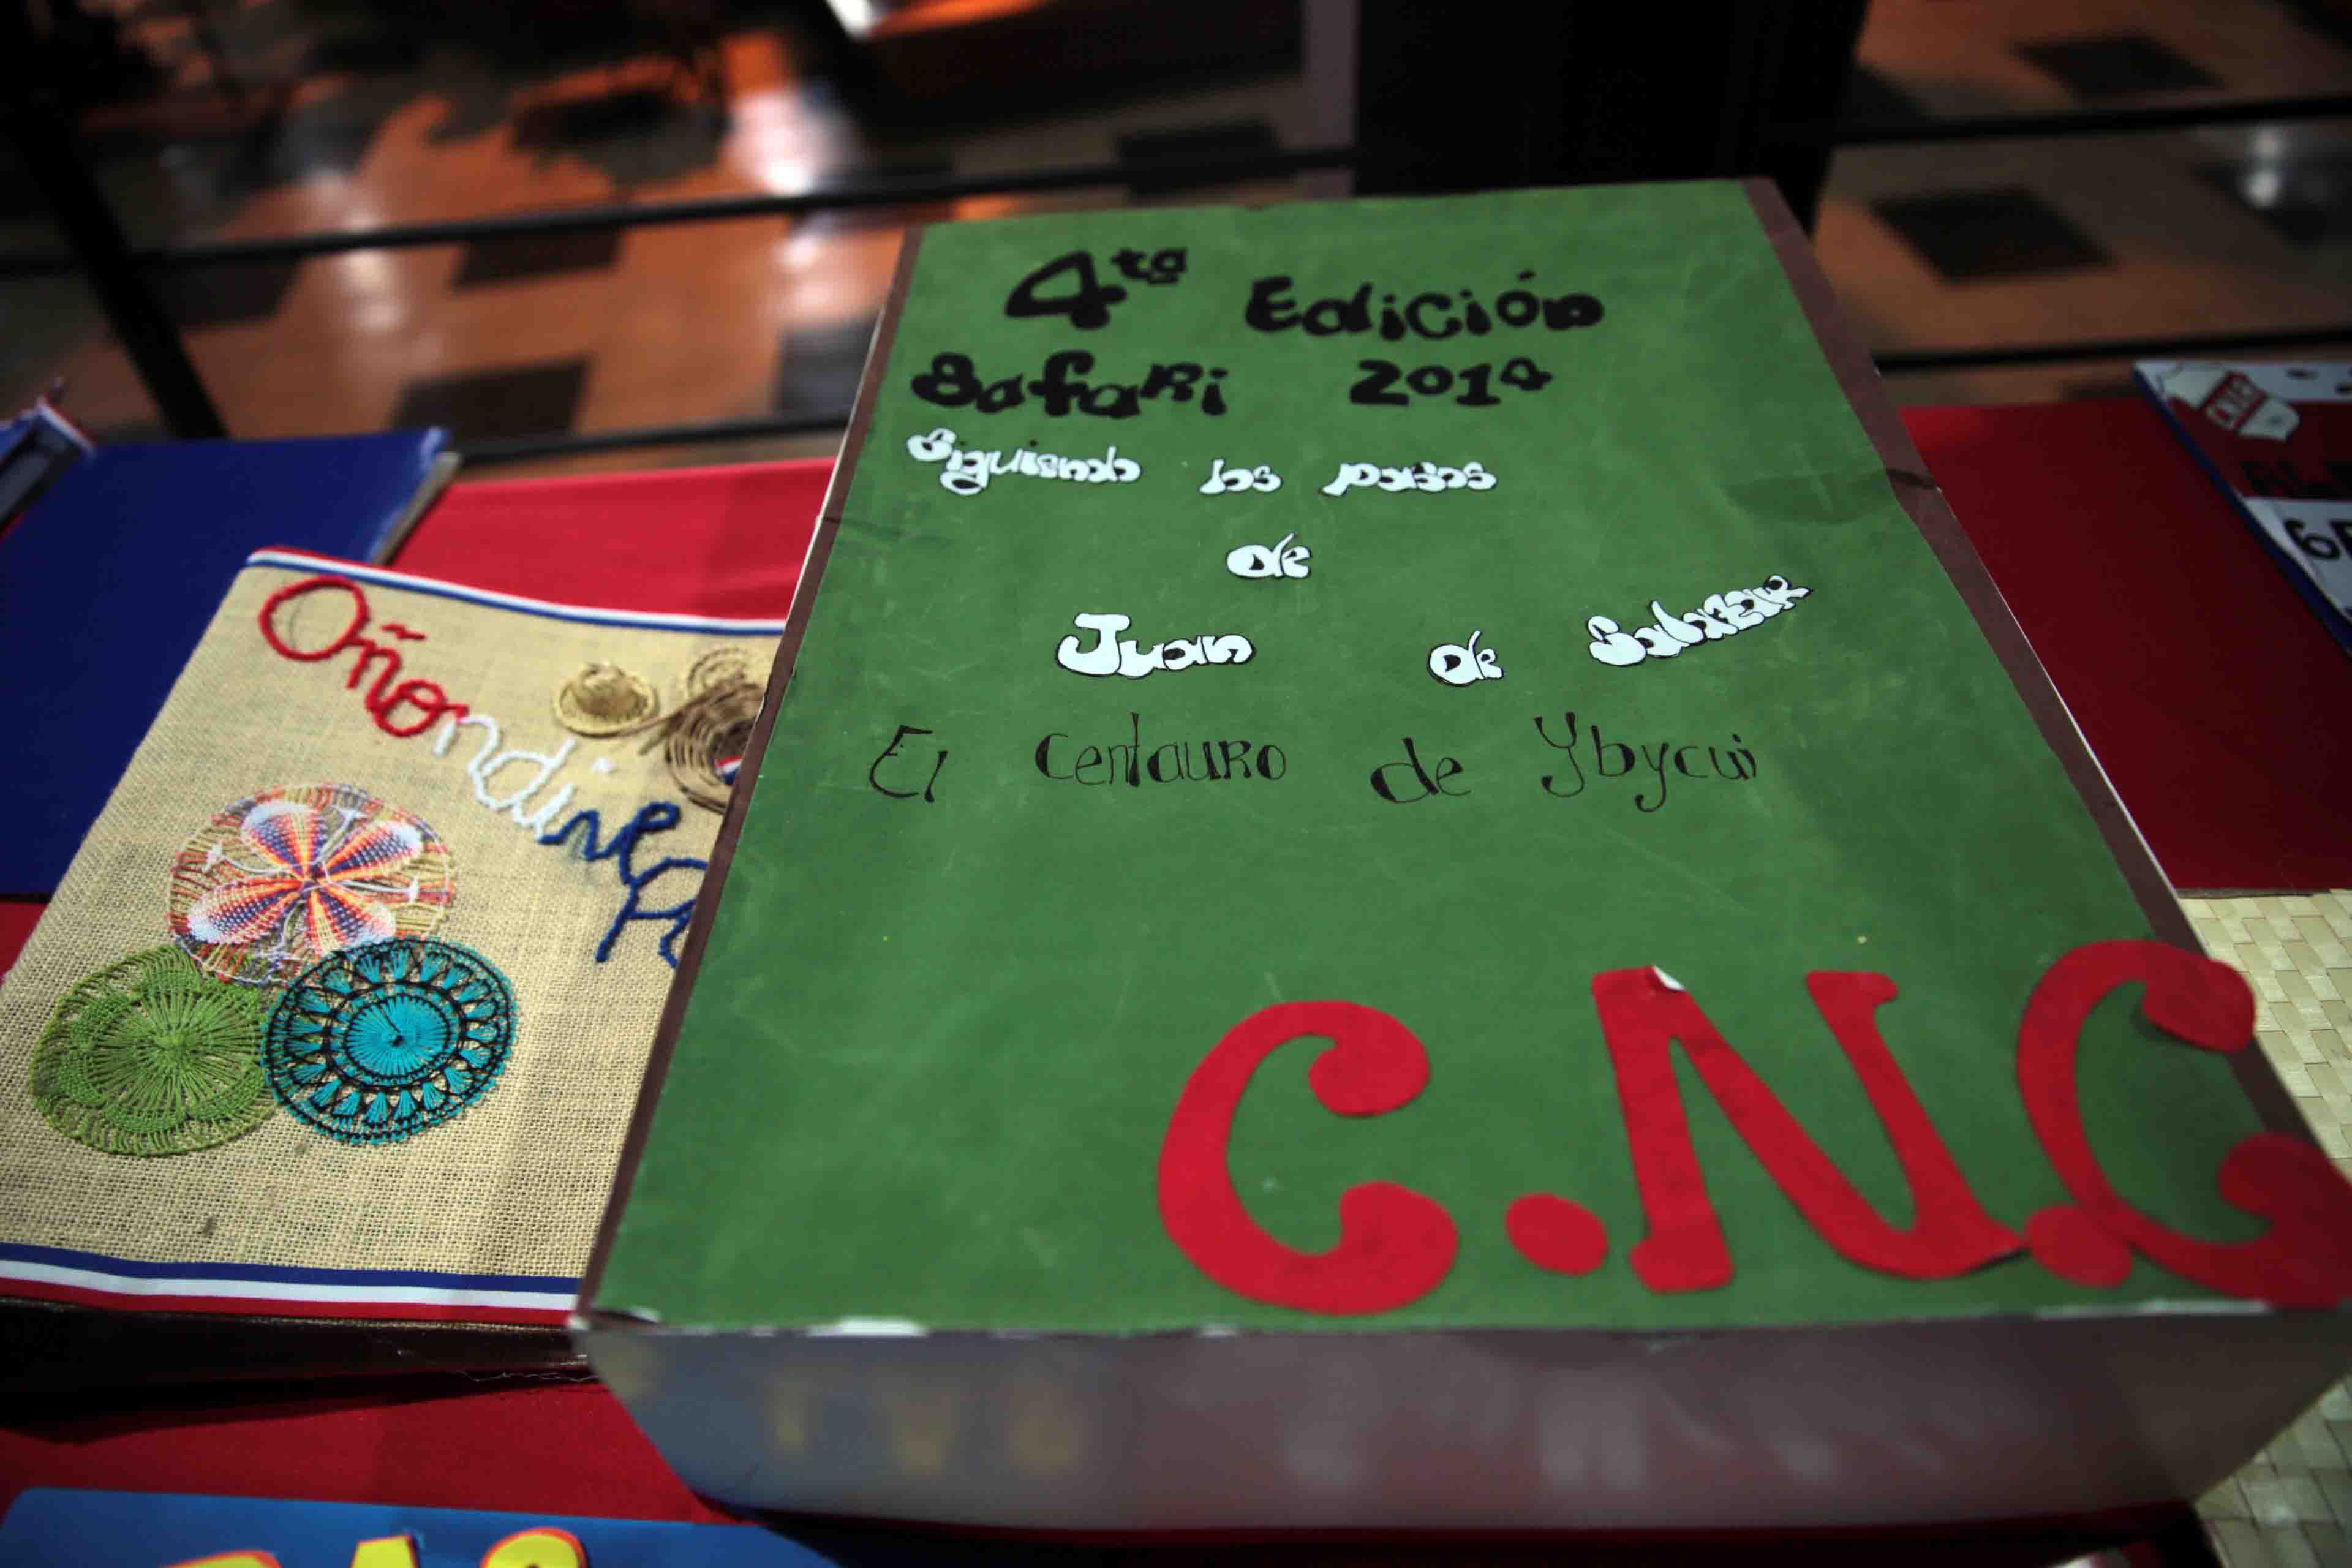 4ta Edición
Safari 2014
Siguiendo los pasos
de
Juan de Salazar
El Centauro de Ybycui
C.N.C.
Oñondive